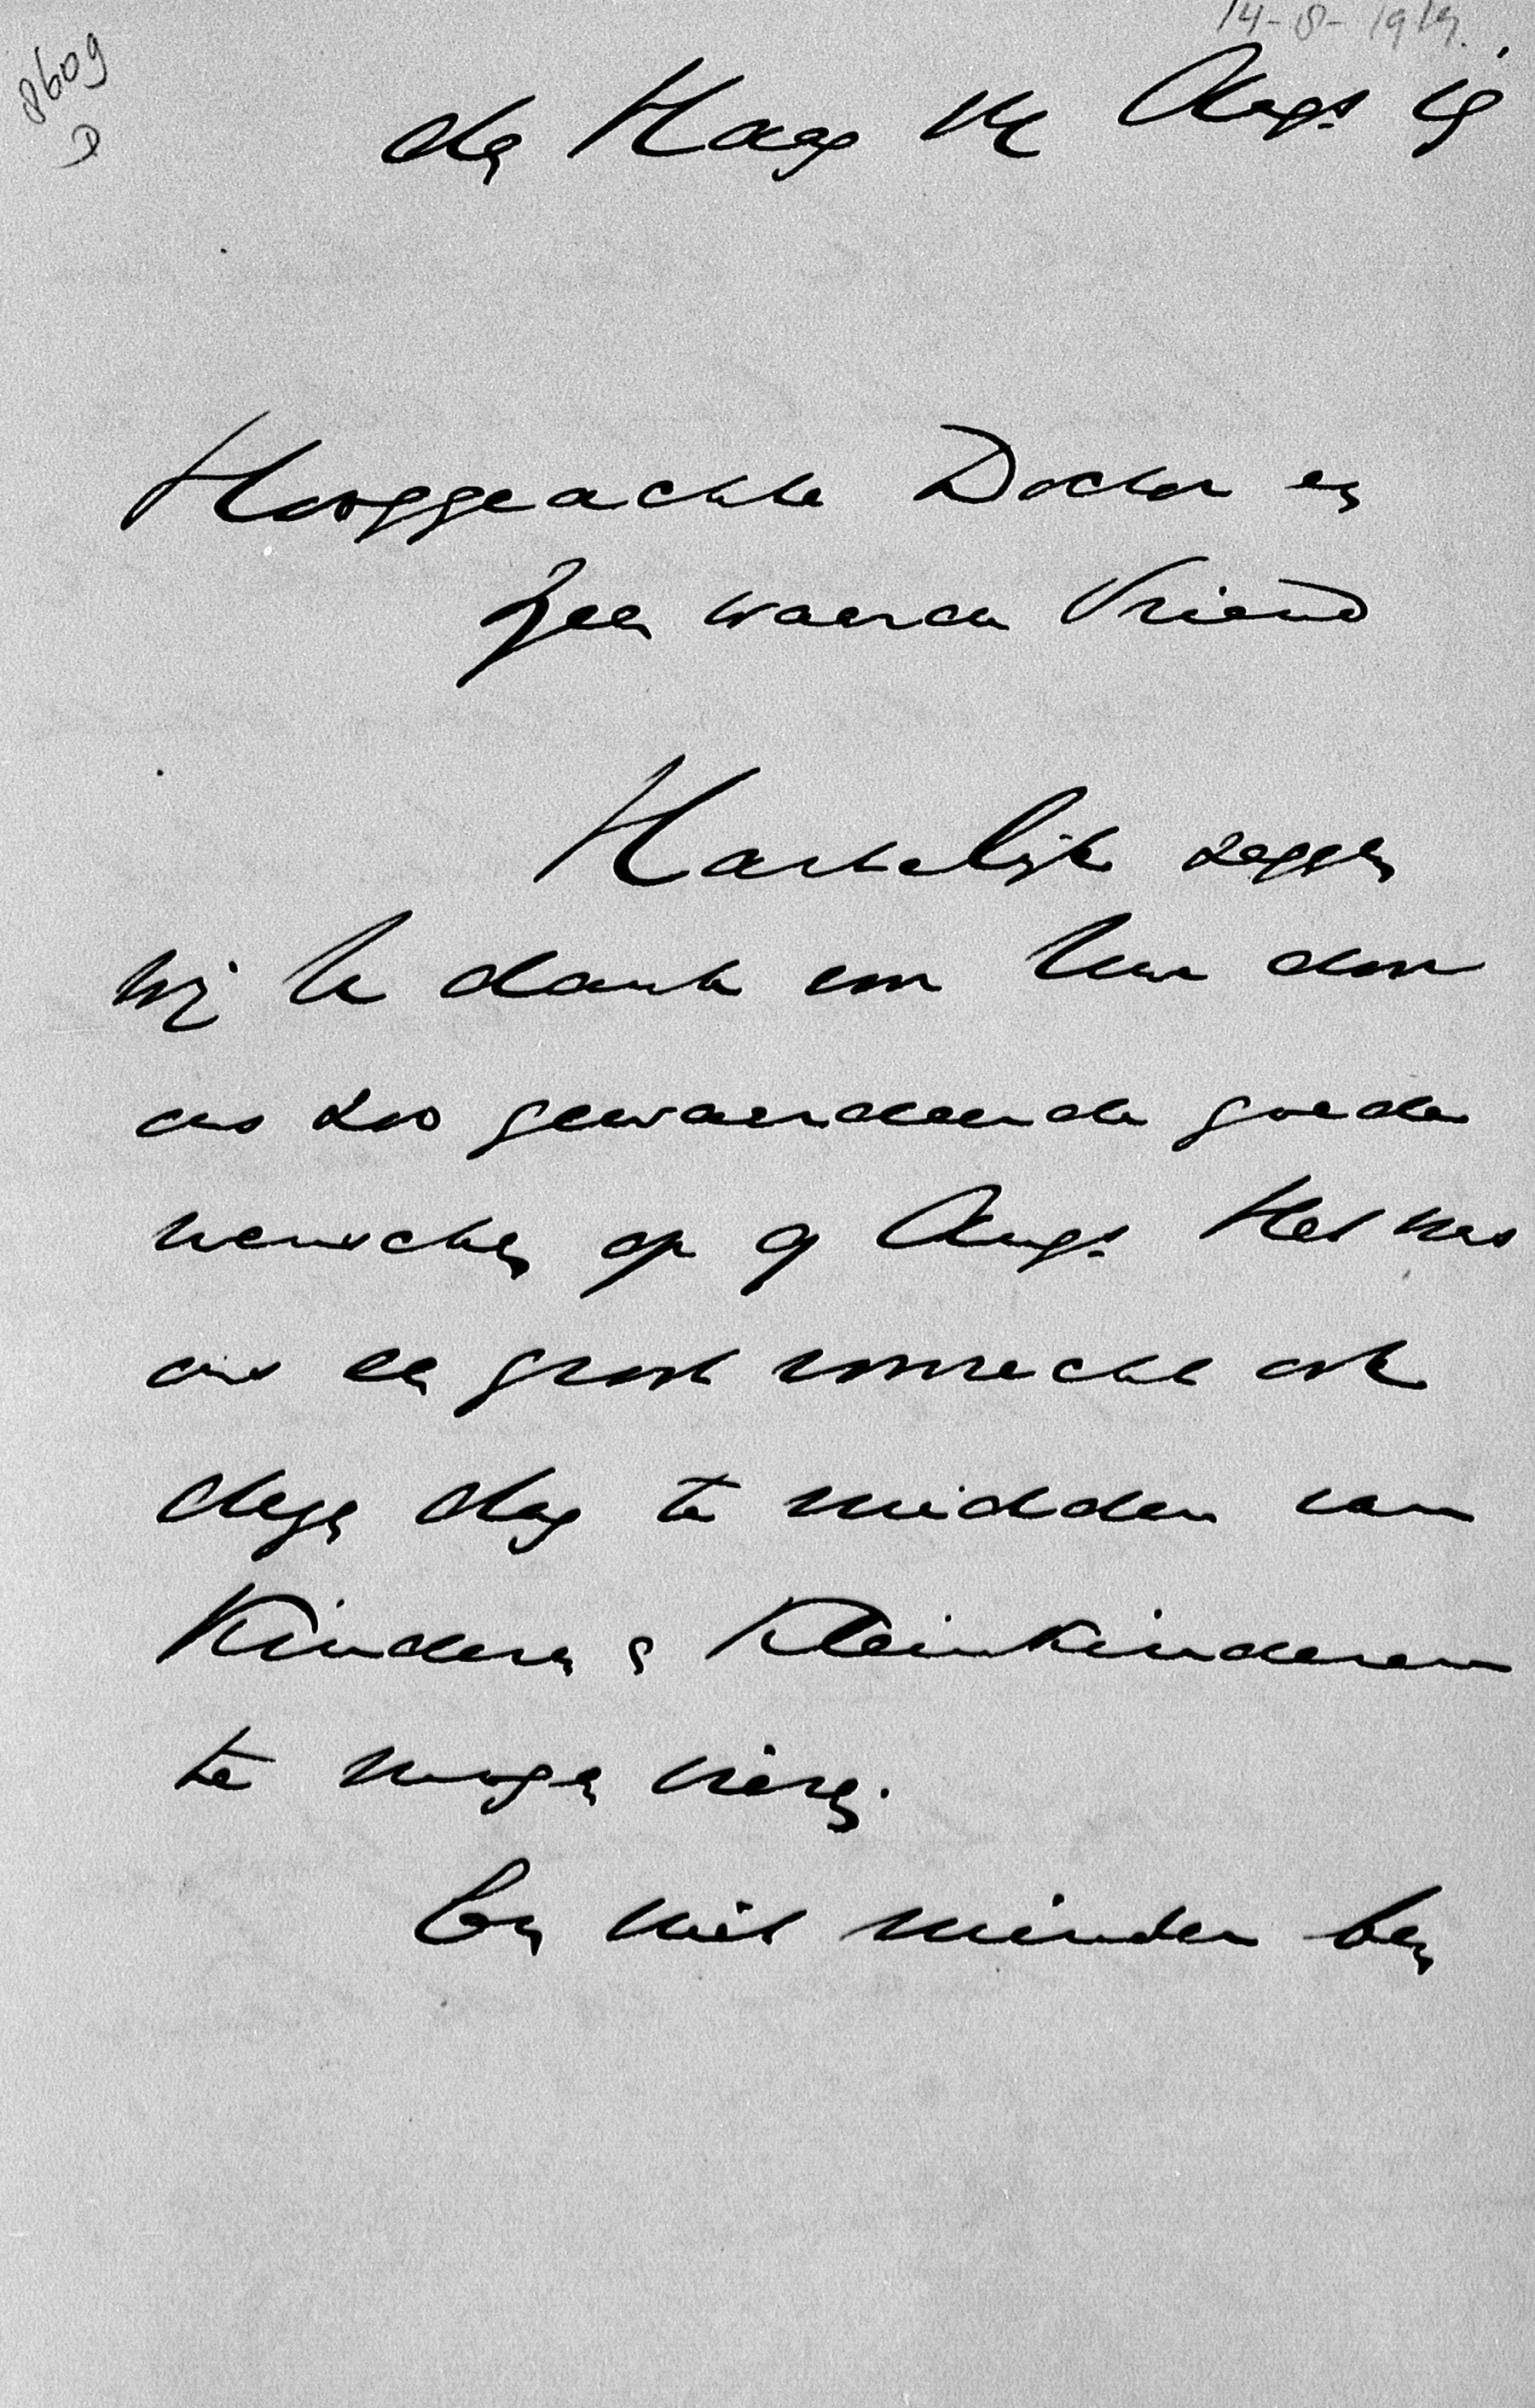 14-8-1919.
8609
D
den Haag 14 Augs 19
Hooggeachte Doctor en
Zeer waarde Vriend
Hartelijk zeggen
wij U dank voor Uw door
ons zoo gewaardeerde goede
wenschen op 9 Augs. Het was
ons een groot voorrecht ook
dezen dag te midden van
Kinderen & Kleinkinderen
te mogen vieren.
En niet minder ben